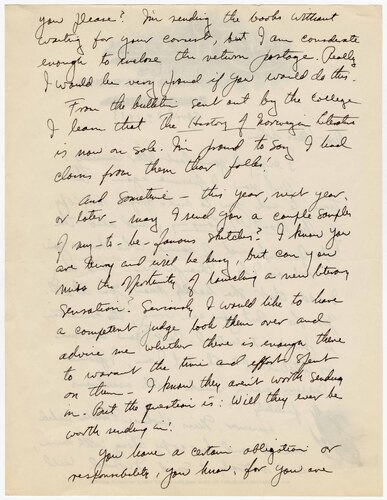 you please? I'm sending the books without
waiting for your consent, but I am considerate
enough to enclose the return postage. Really
I would be very proud if you would do this.
From the bulletin sent out by the college
I learn that The History of Norwegian Literature
is now on sale. I'm proud to say I had
claims from them thar folks!
And sometime – this year, next year,
or later – may I send you a couple samples
of my-to-be-famous sketches? I know you
are and will be busy, but can you
miss the opportunity of launching a new literary
sensation? Seriously I would like to have
a competent judge look them over and
advise me whether there is enough there
to warrant the time and effort spent
on them. I know they aren't worth sending
in. But the question is: Will they ever be
worth sending in?
You have a certain obligation or
responsibility, you know, for you are